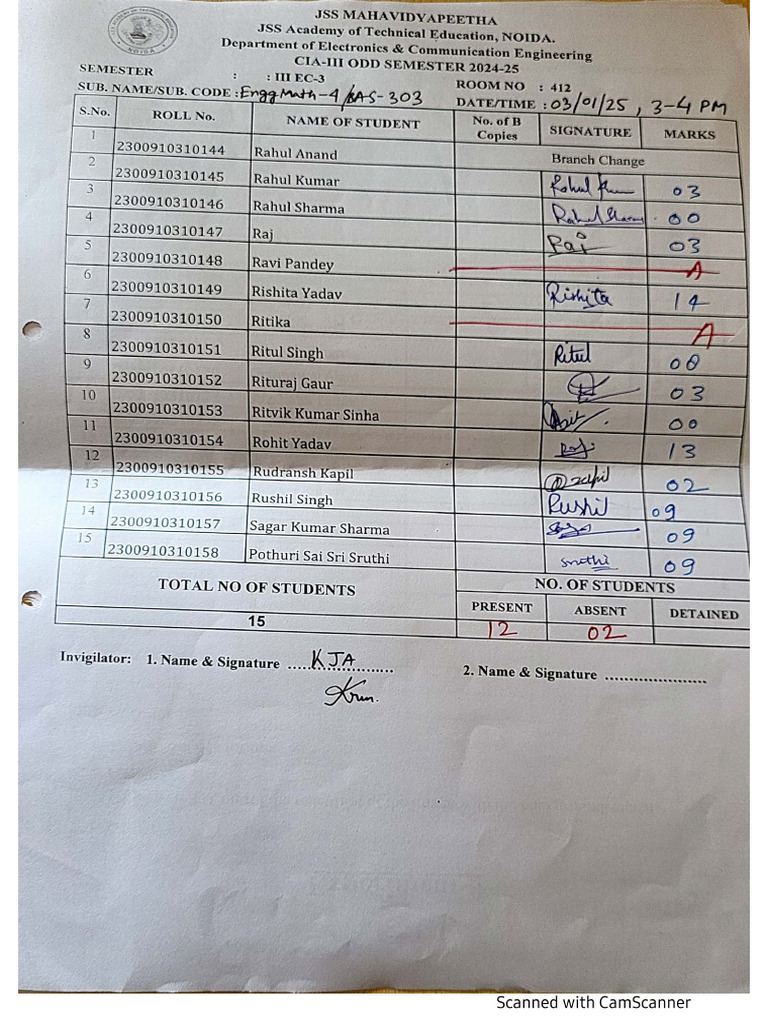 JSS MAHAVIDYAPEETHA
JSS Academy of Technical Education, NOIDA.
Department of Electronics & Communication Engineering
CIA-III ODD SEMESTER 2024-25
SEMESTER : : III EC-3 ROOM NO : 412
SUB. NAME/SUB. CODE : Engg Math-4/BAS-303 DATE/TIME : 03/01/25, 3-4 PM
S.No. ROLL No. NAME OF STUDENT No. of B Copies SIGNATURE MARKS
1 2300910310144 Rahul Anand Branch Change
2 2300910310145 Rahul Kumar Rahul Kum 03
3 2300910310146 Rahul Sharma Rahul Sharma 00
4 2300910310147 Raj Raj 03
5 2300910310148 Ravi Pandey A
6 2300910310149 Rishita Yadav Rishita 14
7 2300910310150 Ritika A
8 2300910310151 Ritul Singh Ritul 08
9 2300910310152 Rituraj Gaur 03
10 2300910310153 Ritvik Kumar Sinha 00
11 2300910310154 Rohit Yadav 13
12 2300910310155 Rudransh Kapil 02
13 2300910310156 Rushil Singh Rushil 09
14 2300910310157 Sagar Kumar Sharma 09
15 2300910310158 Pothuri Sai Sri Sruthi sruthi 09
TOTAL NO OF STUDENTS NO. OF STUDENTS
PRESENT ABSENT DETAINED
15 12 02
Invigilator: 1. Name & Signature ..... KJA ..... 2. Name & Signature .....................
Scanned with CamScanner